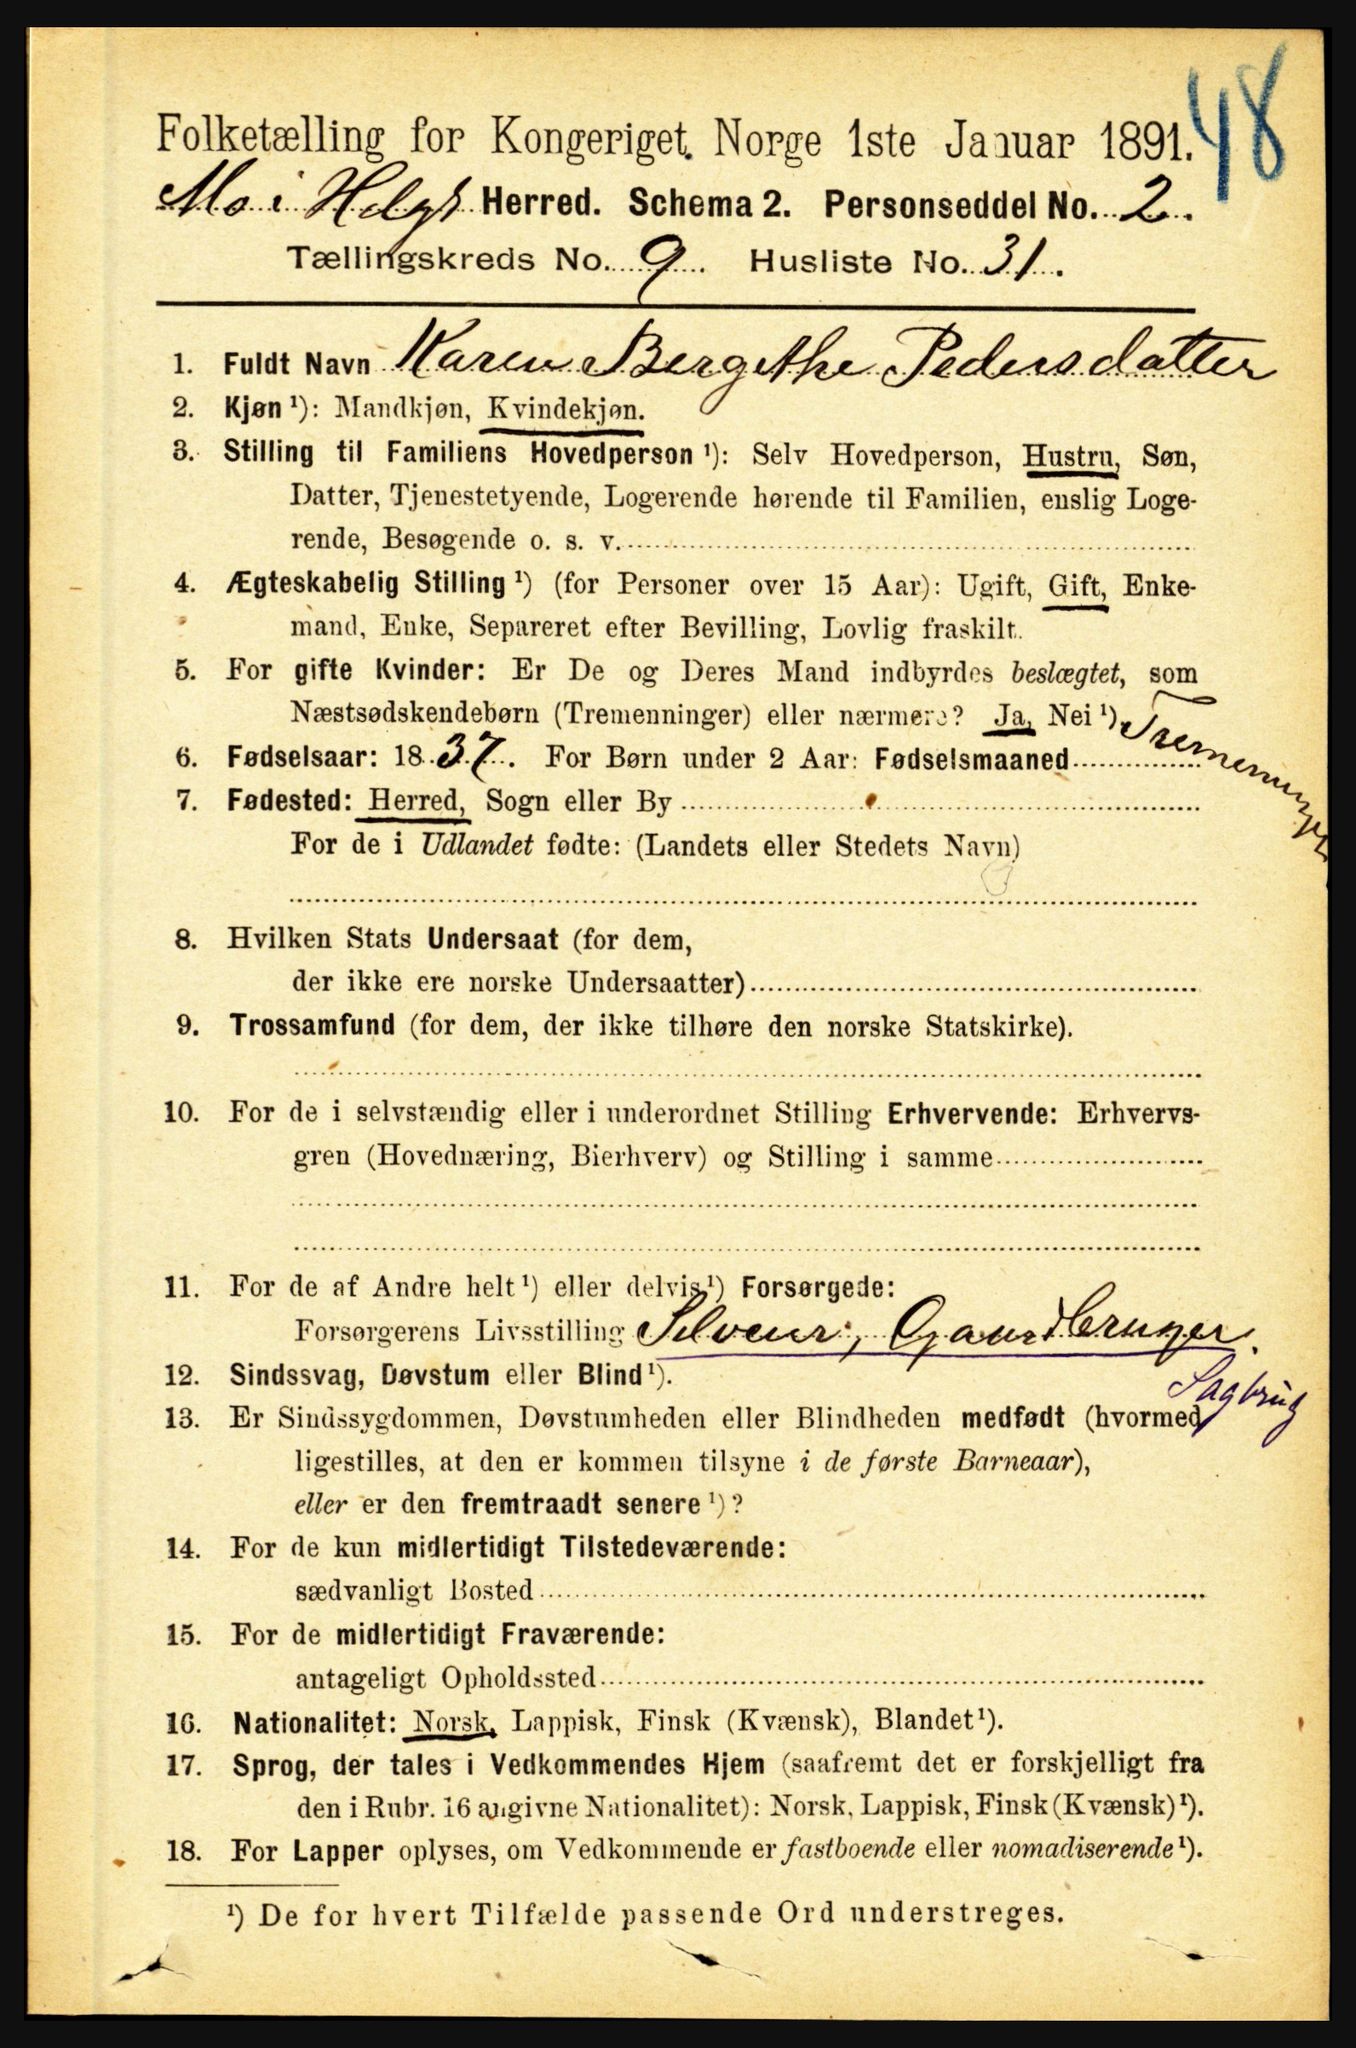 48
Folketælling for Kongeriget Norge 1ste Januar 1891.
Mo i Helgl Herred. Schema 2. Personseddel No. 2.
Tællingskreds No. 9. Husliste No. 31.
1. Fuldt Navn Karen Bergithe Pedersdatter
2. Kjøn ¹): Mandkjøn, Kvindekjøn.
3. Stilling til Familiens Hovedperson ¹): Selv Hovedperson, Hustru, Søn,
Datter, Tjenestetyende, Logerende hørende til Familien, enslig Loge-
rende, Besøgende o. s. v.
4. Ægteskabelig Stilling ¹) (for Personer over 15 Aar): Ugift, Gift, Enke-
mand, Enke, Separeret efter Bevilling, Lovlig fraskilt.
5. For gifte Kvinder: Er De og Deres Mand indbyrdes beslægtet, som
Næstsødskendebørn (Tremenninger) eller nærmere? Ja, Nei ¹). Tremenninger
6. Fødselsaar: 1837. For Børn under 2 Aar: Fødselsmaaned
7. Fødested: Herred, Sogn eller By
For de i Udlandet fødte: (Landets eller Stedets Navn)
8. Hvilken Stats Undersaat (for dem,
der ikke ere norske Undersaatter)
9. Trossamfund (for dem, der ikke tilhøre den norske Statskirke).
10. For de i selvstændig eller i underordnet Stilling Erhvervende: Erhvervs-
gren (Hovednæring, Bierhverv) og Stilling i samme
11. For de af Andre helt ¹) eller delvis ¹) Forsørgede:
Forsørgerens Livsstilling Selveier, Gaardbruger.
Sagbrug
12. Sindssvag, Døvstum eller Blind ¹).
13. Er Sindssygdommen, Døvstumheden eller Blindheden medfødt (hvormed
ligestilles, at den er kommen tilsyne i de første Barneaar),
eller er den fremtraadt senere ¹)?
14. For de kun midlertidigt Tilstedeværende:
sædvanligt Bosted
15. For de midlertidigt Fraværende:
antageligt Opholdssted
16. Nationalitet: Norsk, Lappisk, Finsk (Kvænsk), Blandet ¹).
17. Sprog, der tales i Vedkommendes Hjem (saafremt det er forskjelligt fra
den i Rubr. 16 angivne Nationalitet): Norsk, Lappisk, Finsk (Kvænsk) ¹).
18. For Lapper oplyses, om Vedkommende er fastboende eller nomadiserende ¹).
¹) De for hvert Tilfælde passende Ord understreges.